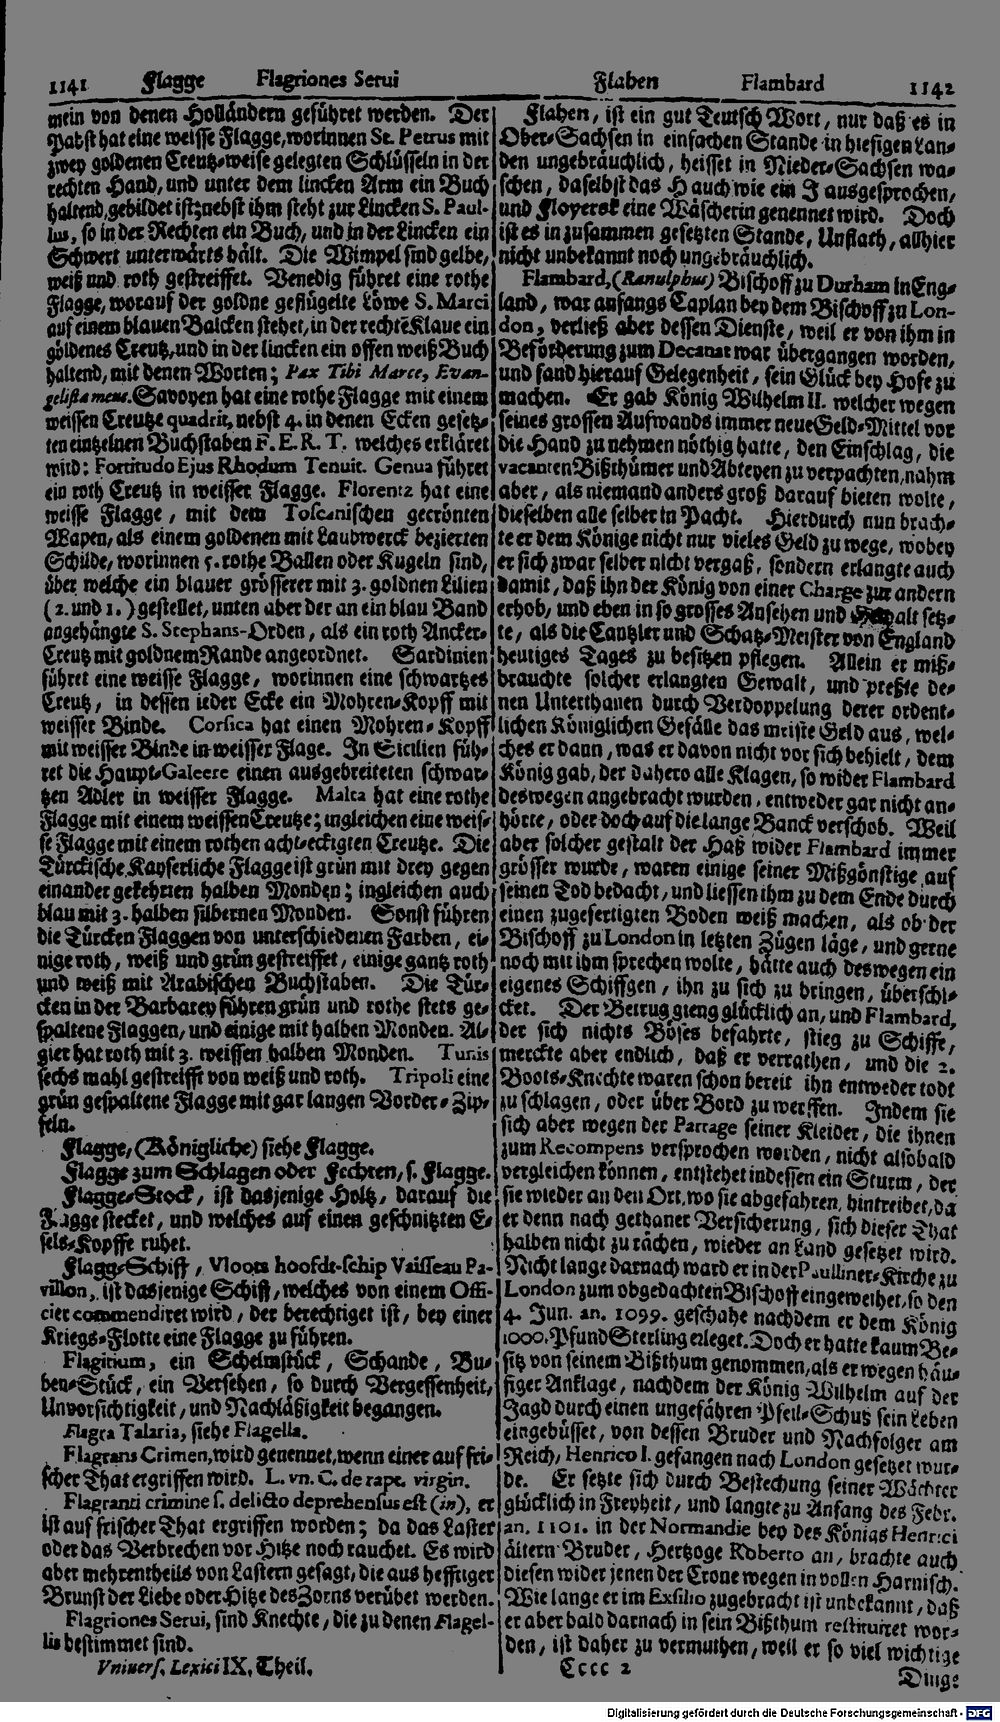 1141 Flagge Flagriones Serui
Flaben Flambard 1142
mein von denen Holländern geführet werden. Der
Pabst hat eine weisse Flagge, worinnen St. Petrus mit
zwey goldenen Creutz-weise gelegten Schlüsseln in der
rechten Hand, und unter dem lincken Arm ein Buch
haltend, gebildet ist; nebst ihm steht zur Lincken S. Paul-
lus, so in der Rechten ein Buch, und in der Lincken ein
Schwert unterwärts hält. Die Wimpel sind gelbe,
weiß und roth gestreiffet. Venedig führet eine rothe
Flagge, worauf der goldne geflügelte Löwe S. Marci
auf einem blauen Balcken stehet, in der rechtē Klaue ein
göldenes Creutz, und in der lincken ein offen weiß Buch
haltend, mit denen Worten; Pax Tibi Marce, Evan-
gelista meus. Savoyen hat eine rothe Flagge mit einem
weissen Creutze quadrit, nebst 4. in denen Ecken gesetz-
ten eintzelnen Buchstaben F. E. R. T. welches erkläret
wird: Fortitudo Ejus Rhodum Tenuit. Genua führet
ein roth Creutz in weisser Flagge. Florentz hat eine
weisse Flagge, mit dem Toscanischen gecrönten
Wapen, als einem goldenen mit Laubwerck bezierten
Schilde, worinnen 5. rothe Ballen oder Kugeln sind,
über welche ein blauer grösserer mit 3. goldnen Lilien
(2. und 1.) gestellet, unten aber der an ein blau Band
angehängte S. Stephans-Orden, als ein roth Ancker-
Creutz mit goldnem Rande angeordnet. Sardinien
führet eine weisse Flagge, worinnen eine schwartzes
Creutz, in dessen ieder Ecke ein Mohren-Kopff mit
weisser Binde. Corsica hat einen Mohren-Kopff
mit weisser Binde in weisser Flage. In Sicilien füh-
ret die Haupt-Galeere einen ausgebreiteten schwar-
tzen Adler in weisser Flagge. Malta hat eine rothe
Flagge mit einem weissen Creutze; ingleichen eine weis-
se Flagge mit einem rothen acht-eckigten Creutze. Die
Türckische Kayserliche Flagge ist grün mit drey gegen
einander gekehrten halben Monden; ingleichen auch
blau mit 3. halben silbernen Monden. Sonst führen
die Türcken Flaggen von unterschiedenen Farben, ei-
nige roth, weiß und grün gestreiffet, einige gantz roth
und weiß mit Arabischen Buchstaben. Die Tür-
cken in der Barbarey führen grün und rothe stets ge-
spaltene Flaggen, und einige mit halben Monden. Al-
gier hat roth mit 3. weissen halben Monden. Tunis
sechs mahl gestreifft von weiß und roth. Tripoli eine
grün gespaltene Flagge mit gar langen Vorder-Zip-
feln.
Flagge, (Königliche) siehe Flagge.
Flagge zum Schlagen oder Fechten, s. Flagge.
Flagge-Stock, ist dasjenige Holtz, darauf die
Flagge stecket, und welches auf einen geschnitzten E-
sels-Kopffe ruhet.
Flagg-Schiff, Vloots hoofdt-schip Vaisseau Pa-
villon, ist dasjenige Schiff, welches von einem Offi-
cier commendiret wird, der berechtiget ist, bey einer
Kriegs-Flotte eine Flagge zu führen.
Flagitium, ein Schelmstück, Schande, Bu-
ben-Stück, ein Versehen, so durch Vergessenheit,
Unvorsichtigkeit, und Nachläßigkeit begangen.
Flagra Talaria, siehe Flagella.
Flagrans Crimen, wird genennet, wenn einer auf fri-
scher That ergriffen wird. L. vn. C. de rapt. virgin.
Flagranti crimine s. delicto deprehensus est (in), er
ist auf frischer That ergriffen worden; da das Laster
oder das Verbrechen vor Hitze noch rauchet. Es wird
aber mehrentheils von Lastern gesagt, die aus hefftiger
Brunst der Liebe oder Hitze des Zorns verübet werden.
Flagriones Serui, sind Knechte, die zu denen Flagel-
lis bestimmet sind.
Vniuers. Lexici IX. Theil.
Flahen, ist ein gut Teutsch Wort, nur daß es in
Ober-Sachsen in einfachen Stande in hiesigen Lan-
den ungebräuchlich, heisset in Nieder-Sachsen wa-
schen, daselbst das H auch wie ein J ausgesprochen,
und Floyersk eine Wäscherin genennet wird. Doch
ist es in zusammen gesetzten Stande, Unflath, allhier
nicht unbekannt noch ungebräuchlich.
Flambard, (Ranulphus) Bischoff zu Durham in Eng-
land, war anfangs Caplan bey dem Bischoff zu Lon-
don, verließ aber dessen Dienste, weil er von ihm in
Beförderung zum Decanat war übergangen worden,
und fand hierauf Gelegenheit, sein Glück bey Hofe zu
machen. Er gab König Wilhelm II. welcher wegen
seines grossen Aufwands immer neue Geld-Mittel vor
die Hand zu nehmen nöthig hatte, den Einschlag, die
vacanten Bißthümer und Abteyen zu verpachten, nahm
aber, als niemand anders groß darauf bieten wolte,
dieselben alle selber in Pacht. Hierdurch nun brach-
te er dem Könige nicht nur vieles Geld zu wege, wobey
er sich zwar selber nicht vergaß, sondern erlangte auch
damit, daß ihn der König von einer Charge zur andern
erhob, und eben in so grosses Ansehen und Gewalt setz-
te, als die Cantzler und Schatz-Meister von England
heutiges Tages zu besitzen pflegen. Allein er miß-
brauchte solcher erlangten Gewalt, und preßte de-
nen Unterthanen durch Verdoppelung derer ordent-
lichen Königlichen Gefälle das meiste Geld aus, wel-
ches er dann, was er davon nicht vor sich behielt, dem
König gab, der dahero alle Klagen, so wider Flambard
deswegen angebracht wurden, entweder gar nicht an-
hörte, oder doch auf die lange Banck verschob. Weil
aber solcher gestalt der Haß wider Flambard immer
grösser wurde, waren einige seiner Mißgönstige auf
seinen Tod bedacht, und liessen ihm zu dem Ende durch
einen zugefertigten Boden weiß machen, als ob der
Bischoff zu London in letzten Zügen läge, und gerne
noch mit ihm sprechen wolte, hätte auch deswegen ein
eigenes Schiffgen, ihn zu sich zu bringen, überschi-
cket. Der Betrug gieng glücklich an, und Flambard,
der sich nichts Böses befahrte, stieg zu Schiffe,
merckte aber endlich, daß er verrathen, und die 2.
Boots-Knechte waren schon bereit ihn entweder todt
zu schlagen, oder über Bord zu werffen. Indem sie
sich aber wegen der Partage seiner Kleider, die ihnen
zum Recompens versprochen worden, nicht alsobald
vergleichen können, entstehet indessen ein Sturm, der
sie wieder an den Ort, wo sie abgefahren, hintreibet, da
er denn nach gethaner Versicherung, sich dieser That
halben nicht zu rächen, wieder an Land gesetzet wird.
Nicht lange darnach ward er in der Paulliner-Kirche zu
London zum obgedachten Bischoff eingeweihet, so den
4. Jun. an. 1099. geschahe nachdem er dem König
1000. Pfund Sterling erleget. Doch er hatte kaum Be-
sitz von seinem Bißthum genommen, als er wegen häu-
figer Anklage, nachdem der König Wilhelm auf der
Jagd durch einen ungefähren Pfeil-Schuß sein Leben
eingebüsset, von dessen Bruder und Nachfolger am
Reich, Henrico I. gefangen nach London gesetzet wur-
de. Er setzte sich durch Bestechung seiner Wächter
glücklich in Freyheit, und langte zu Anfang des Febr.
an. 1101. in der Normandie bey des Königs Henrici
ältern Bruder, Hertzoge Roberto an, brachte auch
diesen wider jenen der Crone wegen in vollen Harnisch.
Wie lange er im Exsilio zugebracht ist unbekannt, daß
er aber bald darnach in sein Bißthum restituiret wor-
den, ist daher zu vermuthen, weil er so viel wichtige
Cccc 2
Dinge
Digitalisierung gefördert durch die Deutsche Forschungsgemeinschaft - DFG